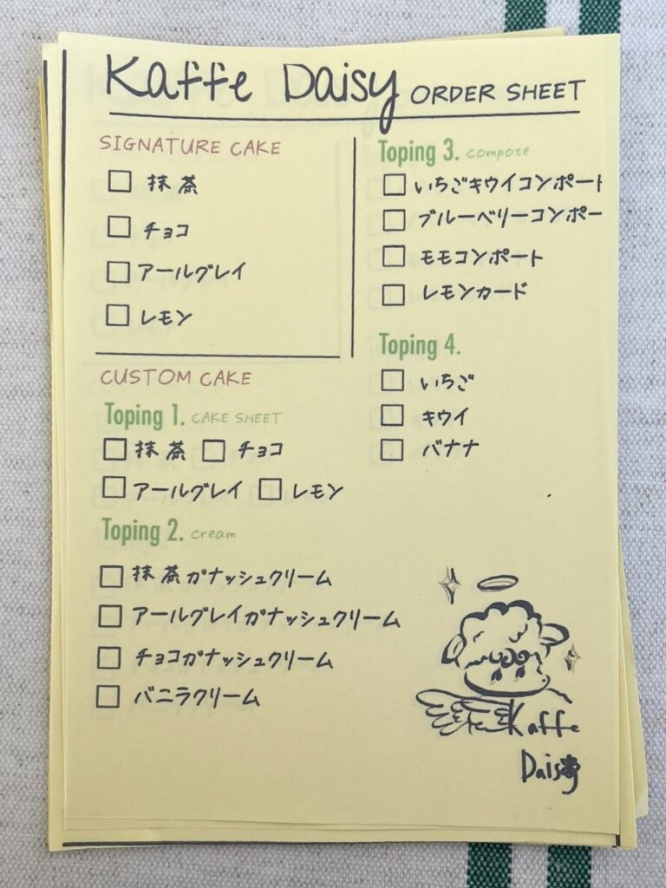 Kaffe Daisy ORDER SHEET
SIGNATURE CAKE
抹茶
チョコ
アールグレイ
レモン
CUSTOM CAKE
Toping 1. CAKE SHEET
抹茶 チョコ
アールグレイ レモン
Toping 2. cream
抹茶ガナッシュクリーム
アールグレイガナッシュクリーム
チョコガナッシュクリーム
バニラクリーム
Toping 3. compote
いちごキウイコンポート
ブルーベリーコンポー
モモコンポート
レモンカード
Toping 4.
いちご
キウイ
バナナ
Kaffe
Daisy